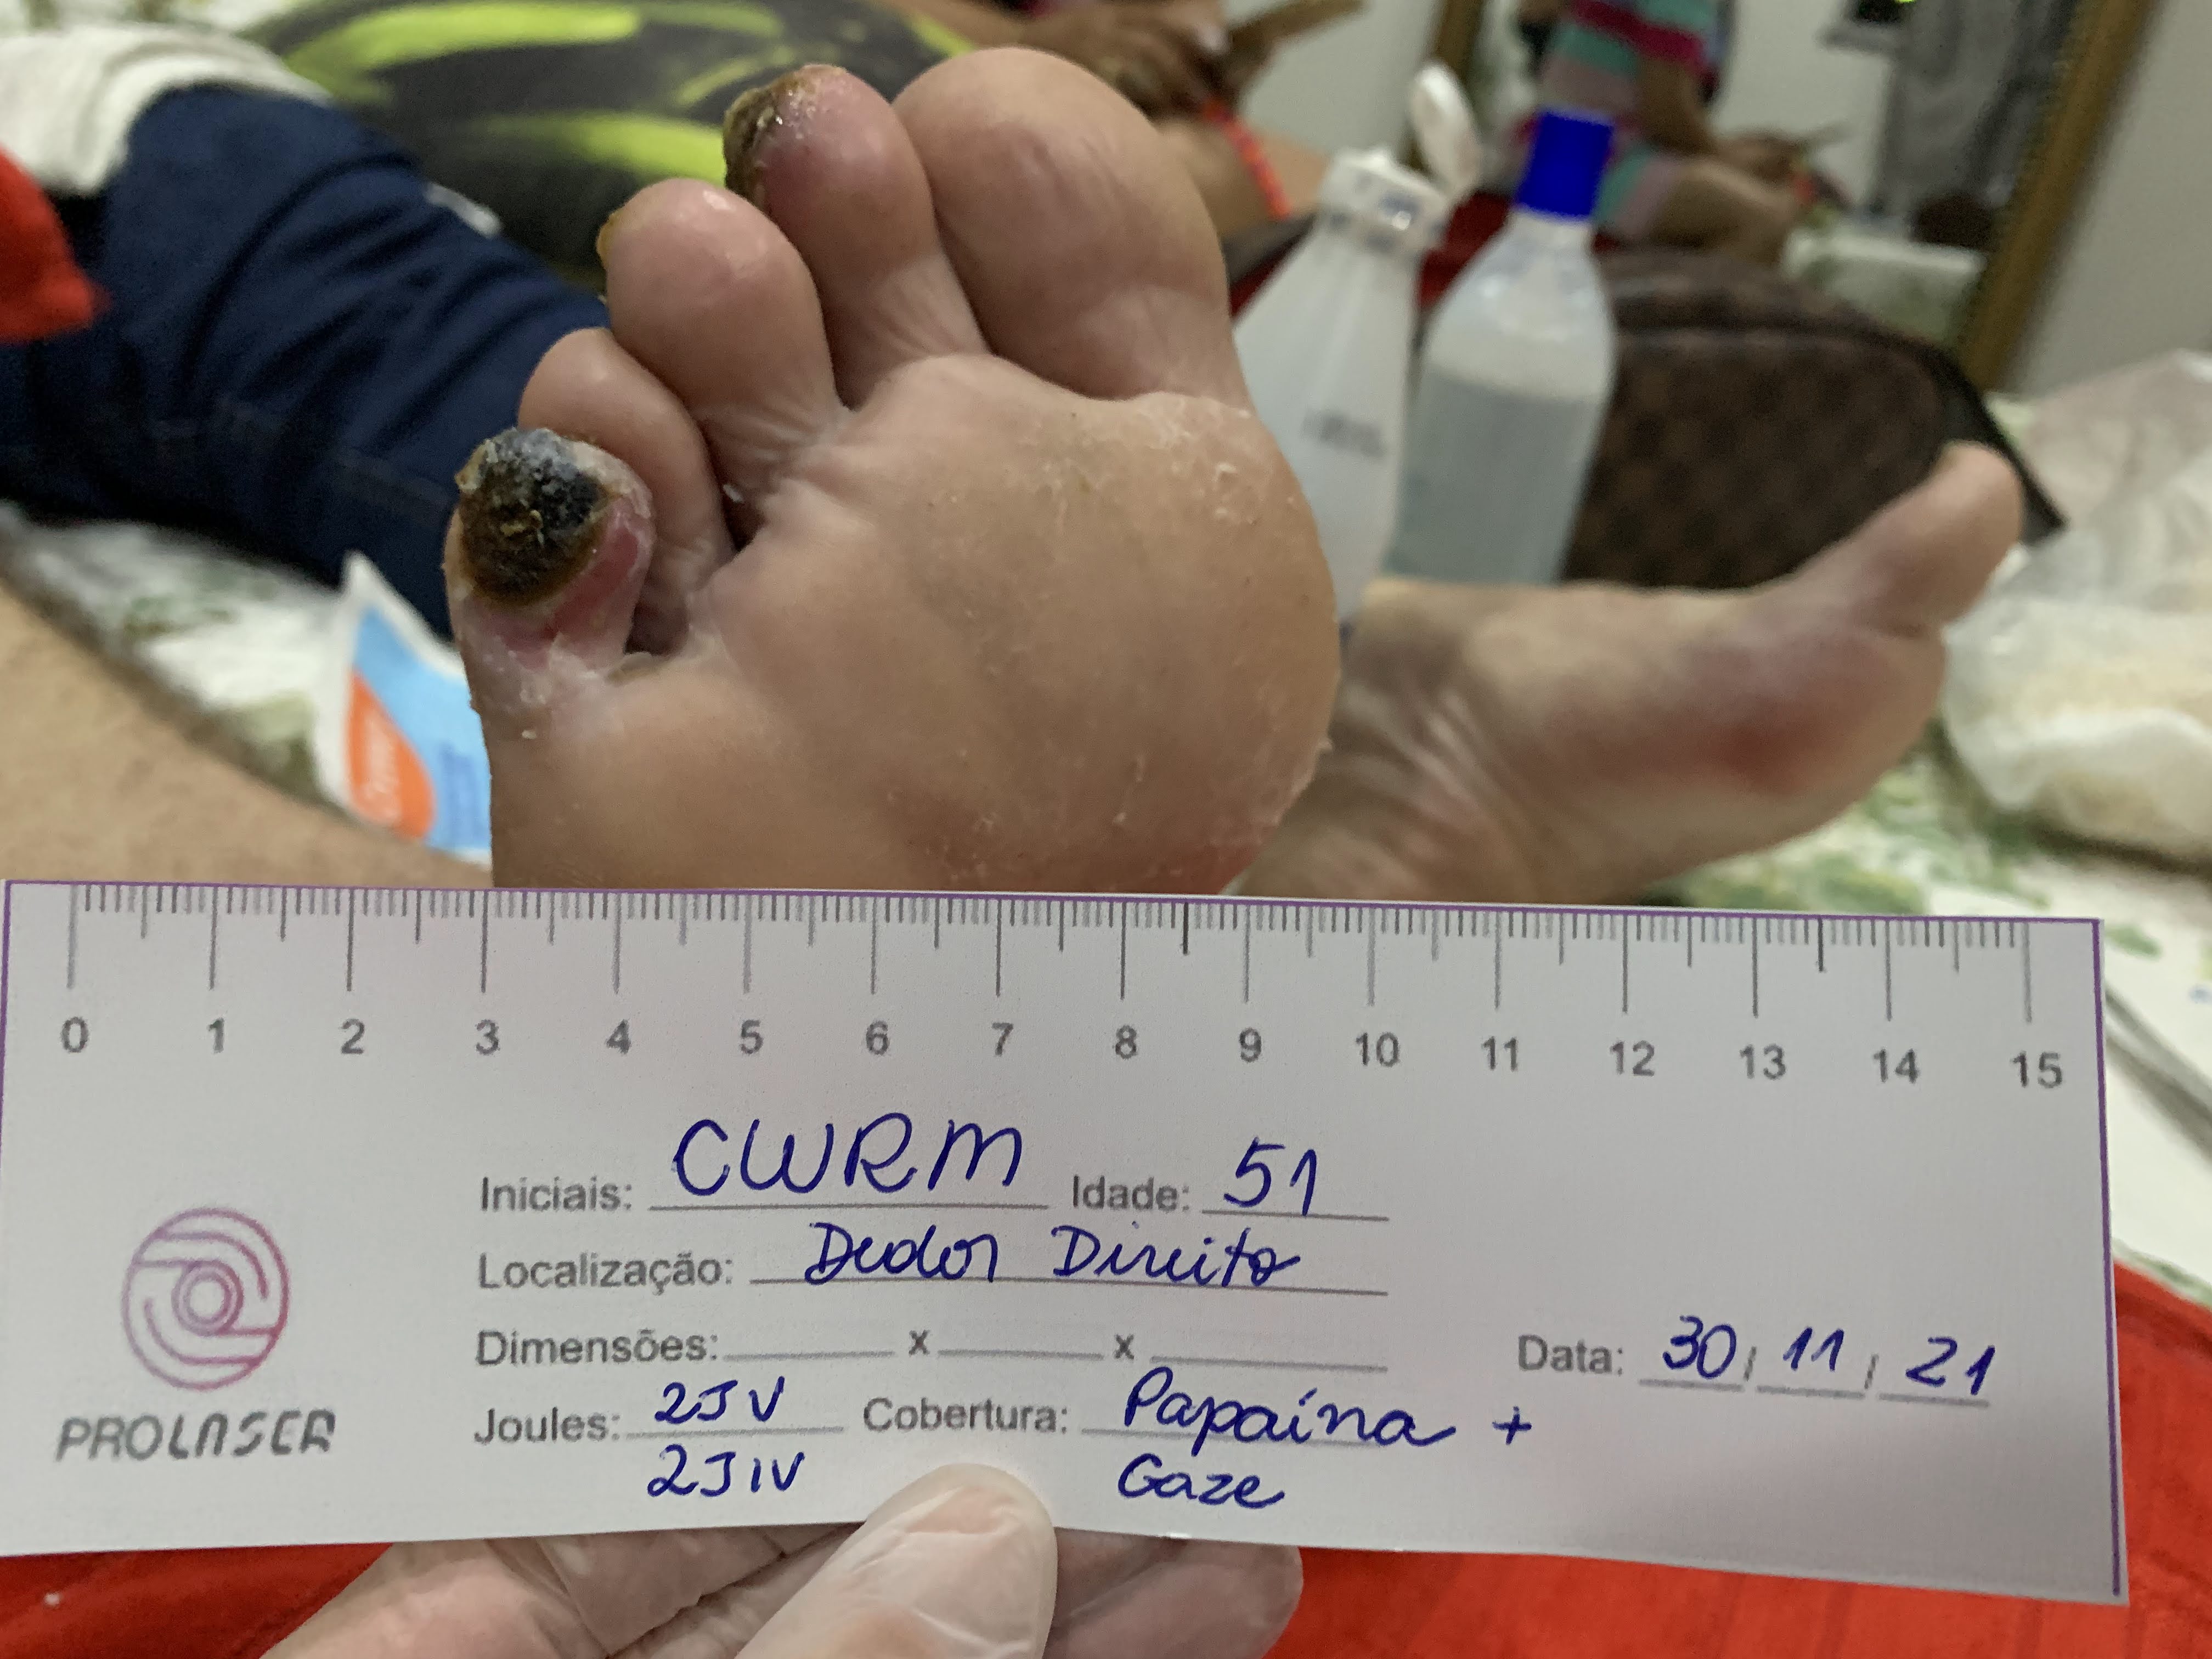 0 1 2 3 4 5 6 7 8 9 10 11 12 13 14 15
Iniciais: CWRM Idade: 51
Localização: Dedos Direito
Dimensões: x x Data: 30/11/21
Joules: 2JV Cobertura: Papaína +
2JIV Gaze
PROLASER